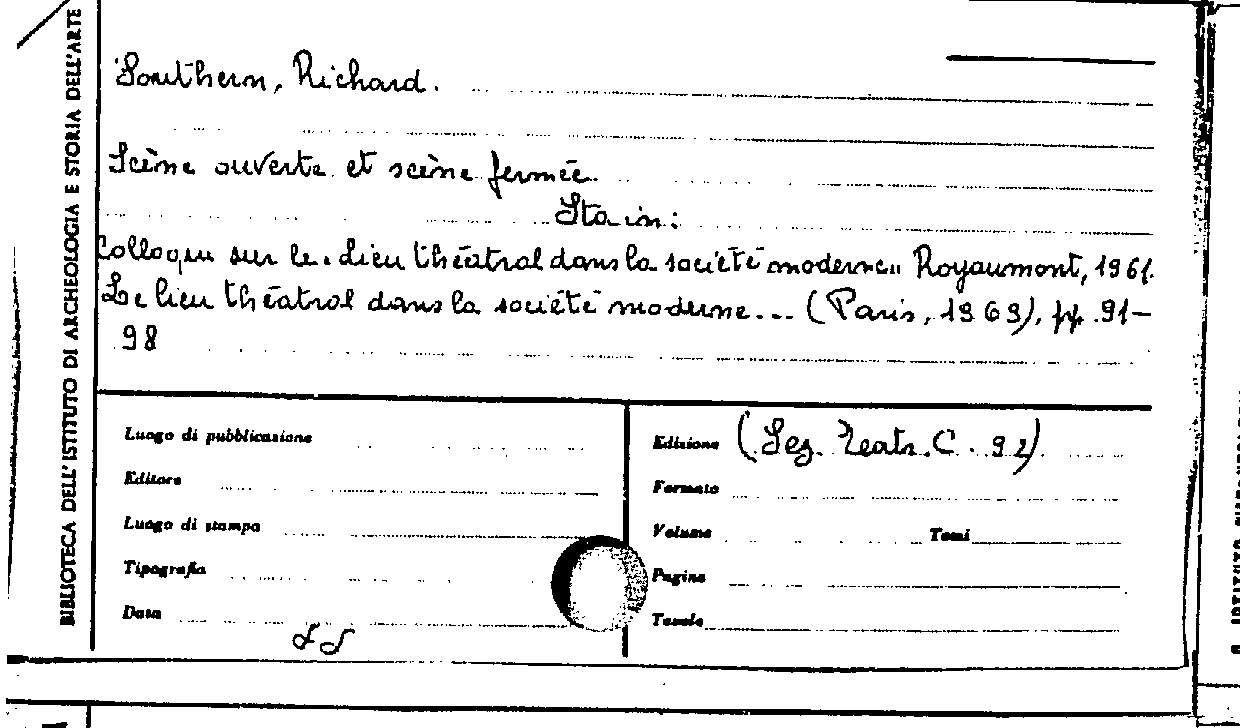 BIBLIOTECA DELL'ISTITUTO DI ARCHEOLOGIA E STORIA DELL'ARTE
Southern, Richard.
Scène ouverte et scène fermée.
Sta in:
Colloqu sur le lieu théâtral dans la société moderne Royaumont, 1961.
Le lieu théâtral dans la société moderne... (Paris, 1969), pp. 91-
98
Luogo di pubblicazione
Editore
Luogo di stampa
Tipografia
Data
Edizione (Sez. Teatr. C. 92)
Formato
Volume Tomi
Pagine
Tavole